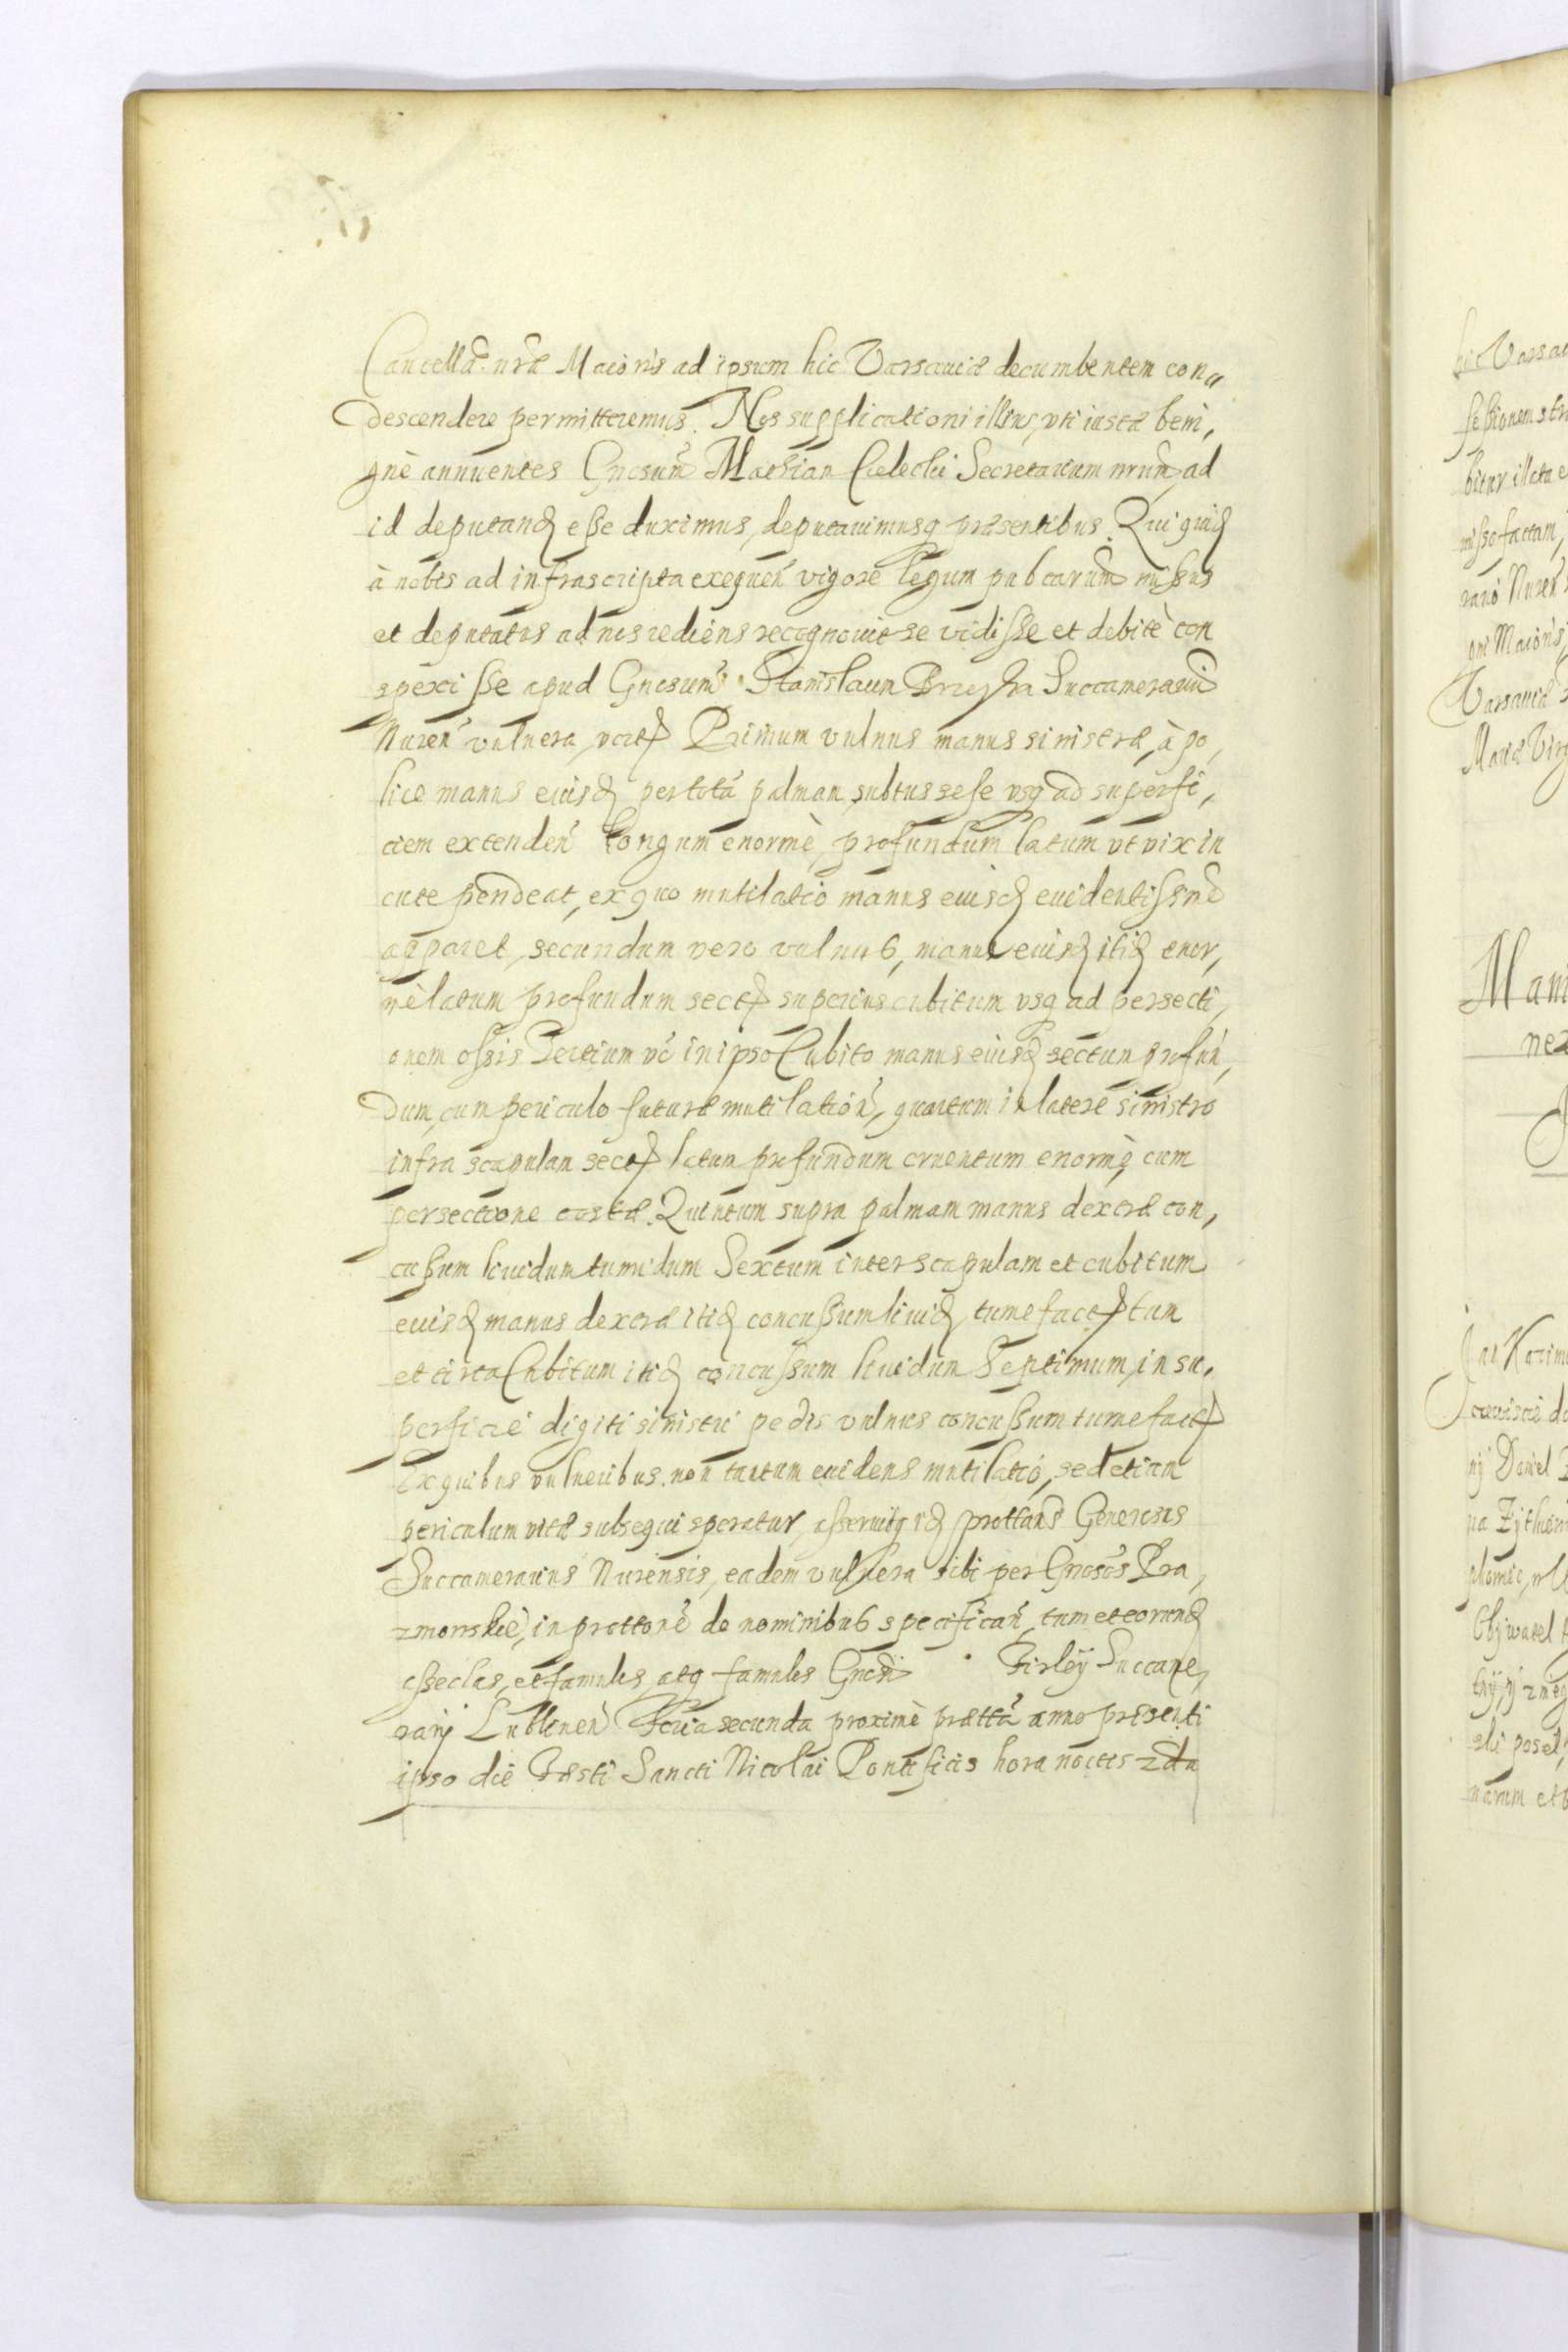 Cancellã. nrã Maioris ad ipsum hic Varsaviæ decumbentem con„
descendere permitteremus. Nos supplicationi illius, vti iustæ beni,
gnè annuentes Gnosum Mathian Secretarium nrum, ad
id deputand eße duximus, deputauimusq præsentibus. Qui quid
à nobis ad infrascripta exequen vigore legum pubcarum mißus
et deputatus ad nos rediens recognouit se vidisse et debitè con
spexisse apud Gnosum Stanislaum Succamerariũ
Nuren̄ vulnera, Primum vulnus manus sinistræ, à po,
lice manus eiusd per totã palmam subtus sese vsq ad superfi,
ciem extenden̄ longum enormè, profundum latum vt vix in
cute pendeat, ex quo mutilatio manus eiusd euidentissimè
apparet, secundum vero vulnus, manus eiusd itid enor,
mè latum profundum sect superius cubitum vsq ad persecti,
onem ossis Tertium vò in ipso Cubito manus eiusd sectum profun,
dum, cum periculo futuræ mutilation̄, quartum in latere sinistro
infra scapulam sect latum profundum cruentum enormè, cum
persectione costæ. Quintum supra palmam manus dextræ con,
cußum liuidum tumidum Sextum inter scapulam et cubitum
eiusd manus dextræ itid concußum liuid, tumefact tum
et circa Cubitum itid concussum liuidum Septimum, in su,
perficie digiti sinistri pedis vulnus concußum tumefact
Ex quibus vulneribus non tantum euidens mutilatio, sed etiam
periculum vitæ subsequi speratur, asseruitq id prottans Generosus
Succamerarius Nurensis, eadem vulnera sibi per Gnosos Pra,
zmowskie, in prottone de nominibus specifican̄, tum et eorund
asseclas, et famulos atq famulos Gnosi Firley Succame,
rarij Lublinen̄ Feria secunda proximè prætta anno præsenti
ipso die Festi Sancti Nicolai Pontificis hora noctis 2da
hic Varsau
bitur illata e
missofactam,
rario Nuren̄
Maioris,
Varsauiæ
Mariæ Virg
Mani
Jan Kazim
nij Daniel
Obywatel
posel